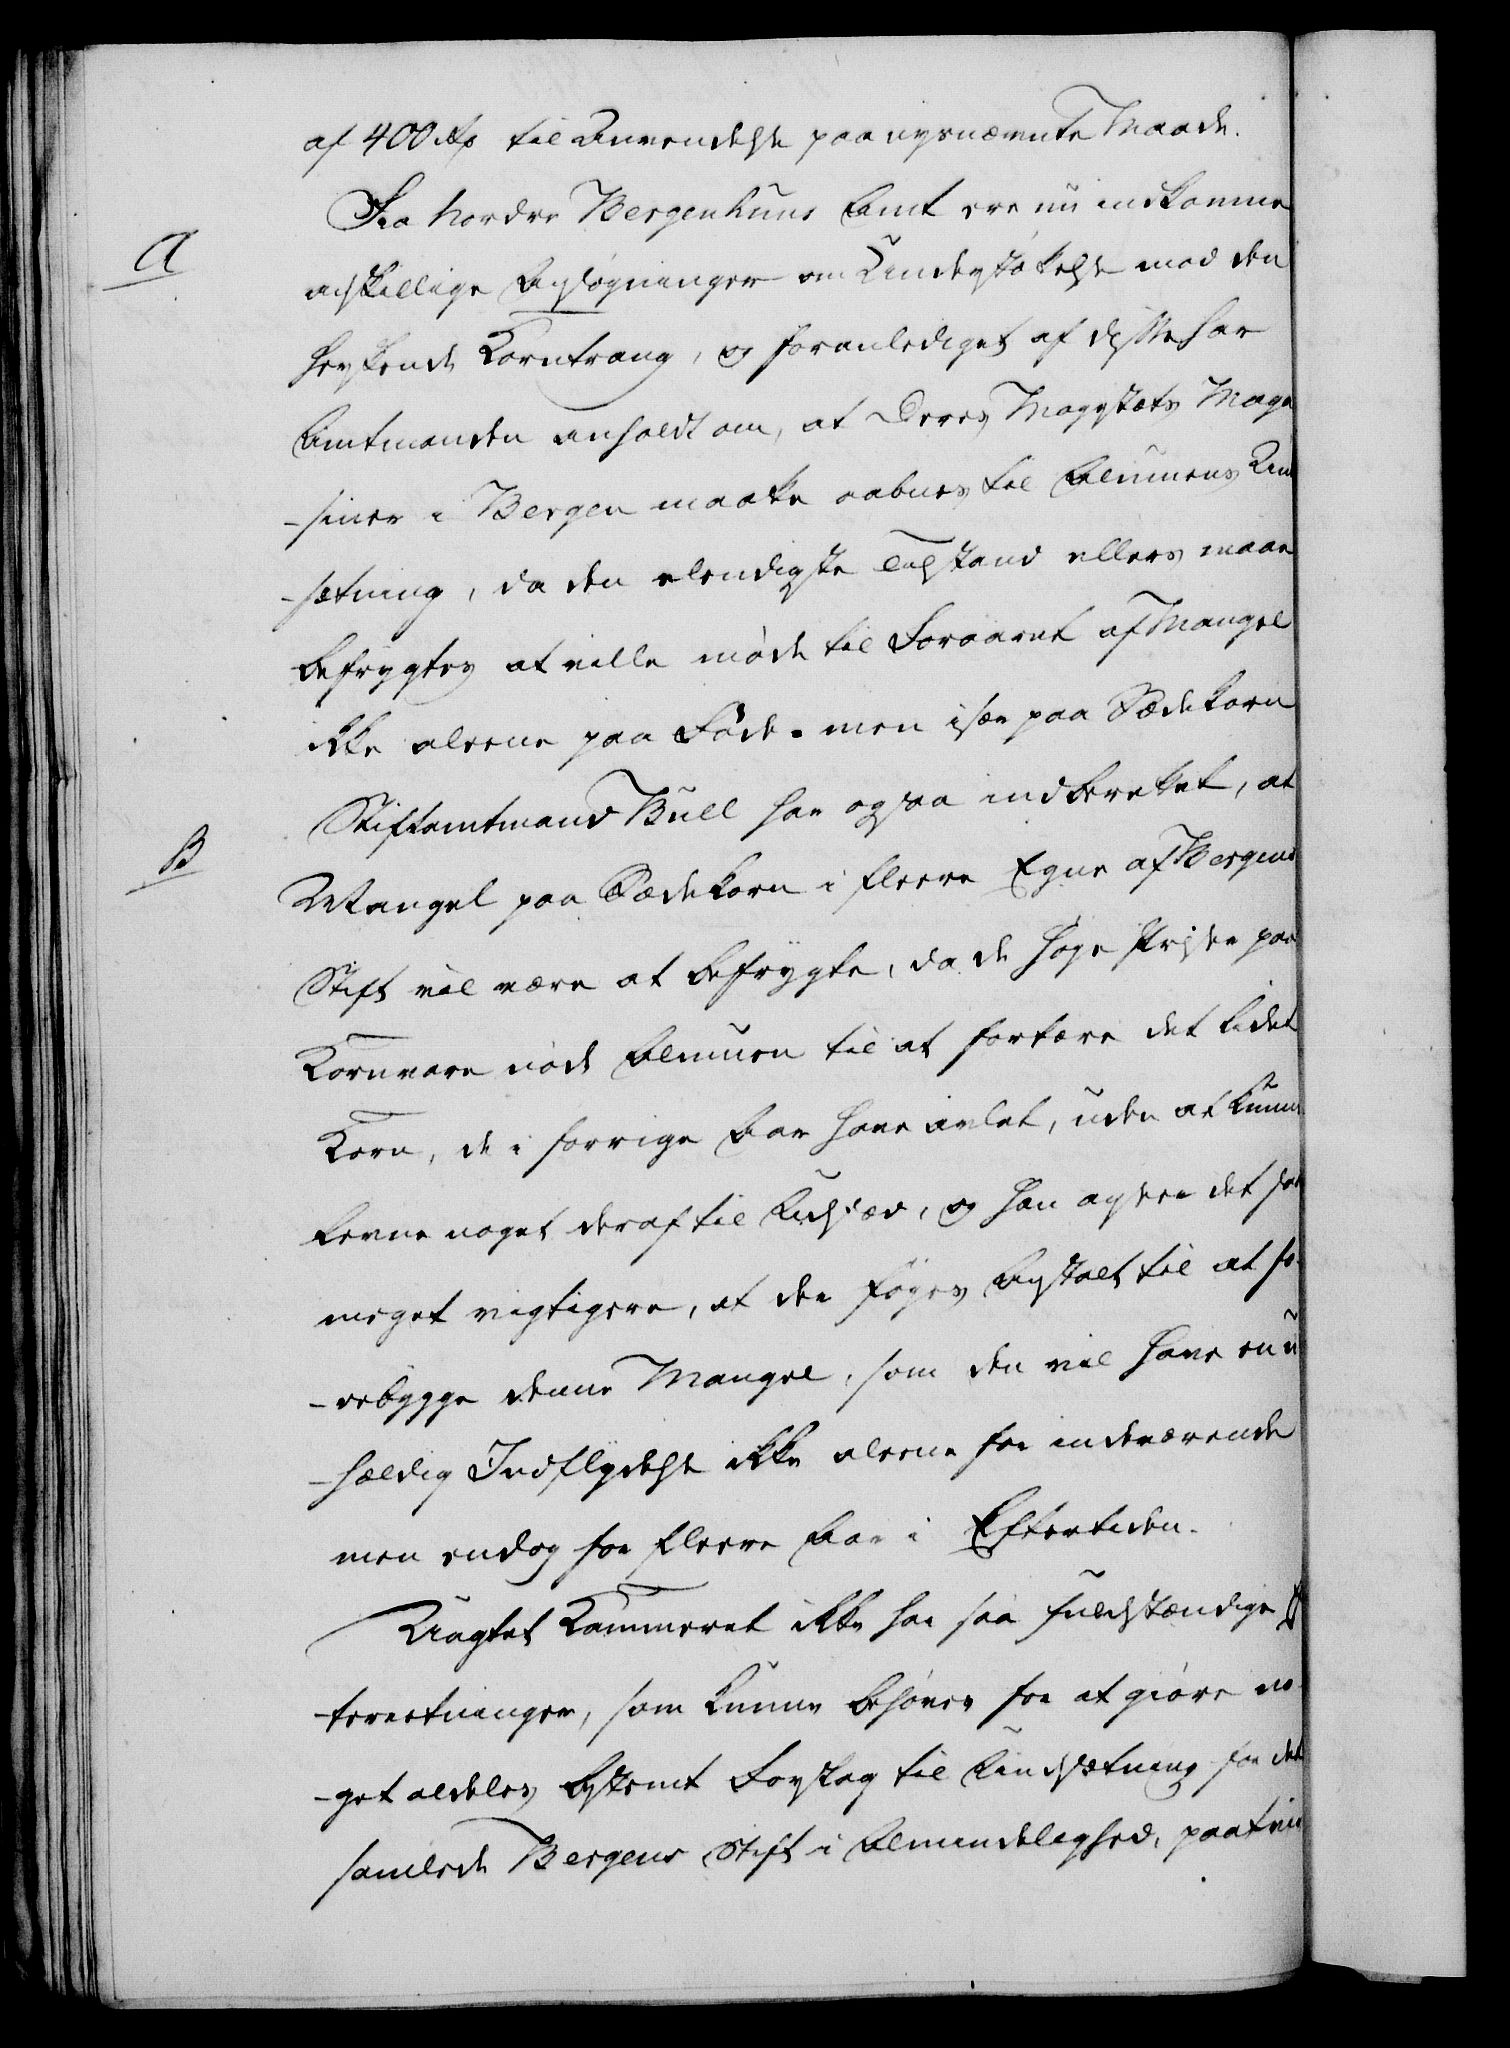 af 400 Rd til Anvendelse paa nysnævnte Maade.
Fra Nordre Bergenhuus Amt ere nu indkomne
A
adskillige Ansøgninger om Understøttelse mod den
herskende Korntrang, og foranlediget af disse har
Amtmanden anholdt om, at Deres Mayestæts Maga
-siner i Bergen maatte aabnes til Almuens Und
-sætning, da den elendigste Tilstand ellers maae
befrygtes at ville møde til Foraaret af Mangel
ikke aleene paa Føde- men især paa Sædekorn
Stiftamtmand Bull har ogsaa indberettet, at
B
Mangel paa Sædekorn i fleere Egne af Bergens
Stift vil være at befrygte, da de høye Priser paa
Kornvare nøde Almuen til at fortære det lidet
Korn, de i forrige Aar have avlet, uden at kunne
levne noget deraf til Udsæd, og han agter det saa
meget vigtigere, at der føyes Anstalt til at fo-
-rebygge denne Mangel, som den vil have en u
-heldig Indflydelse ikke aleene for indeværende
men endog for fleere Aar i Eftertiden.
Uagtet Kammeret ikke har saa fuldstændige Ef
-terretninger, som kunne behøves for at giøre no-
-get aldeles bestemt Forslag til Undsætning for det
samlede Bergens Stift i Almindelighed, paatvi